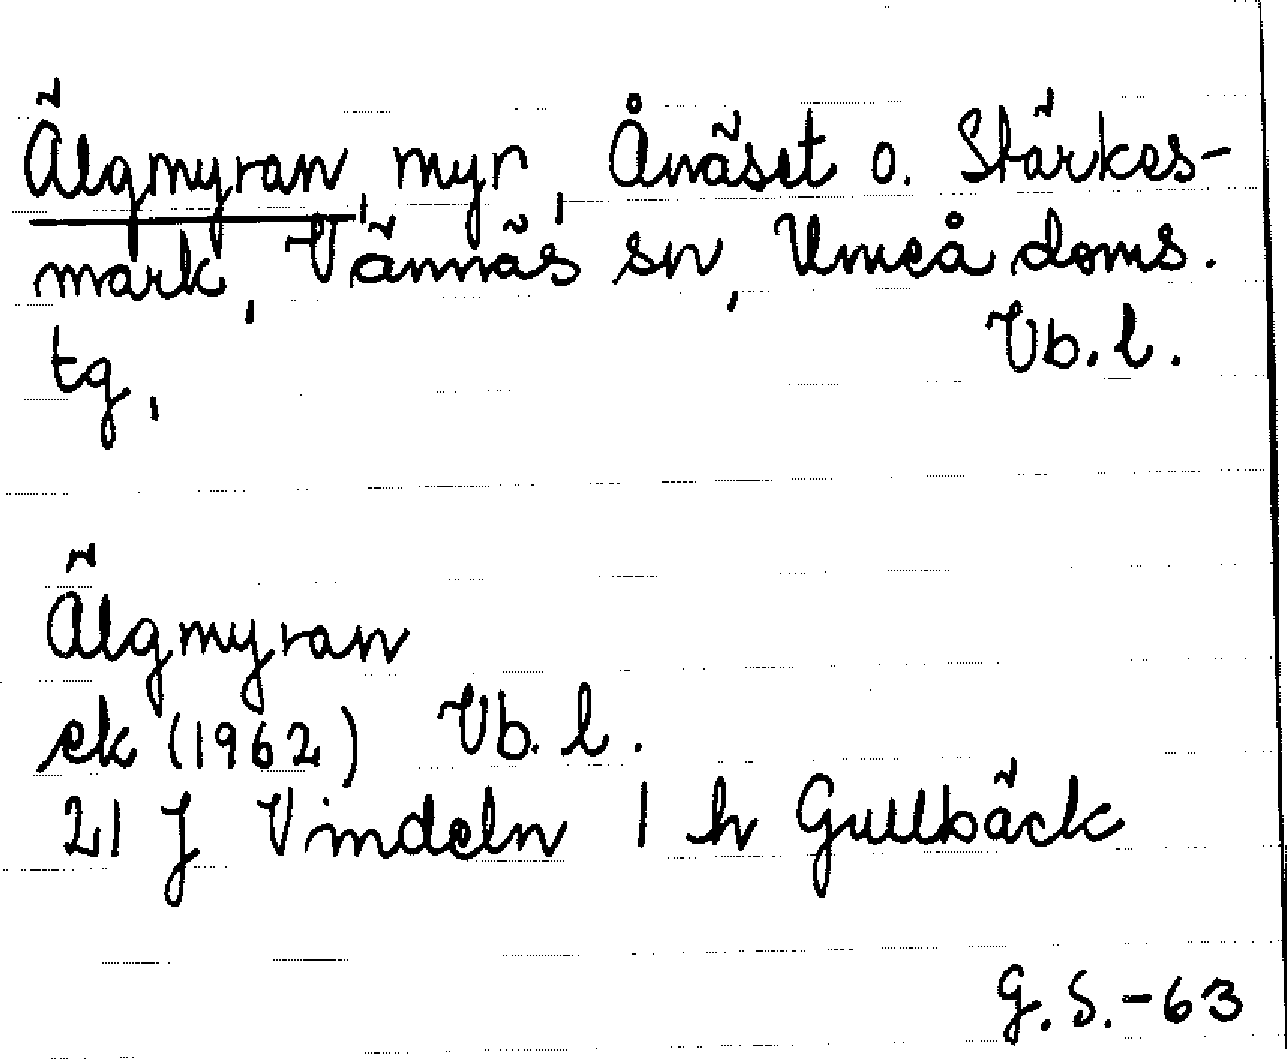 Älgmyran, myr, Ånäset o. Stärkes-
mark, Vännäs sn, Umeå doms.
tg, Vb. l.
Älgmyran
ek (1962) Vb. l.
21 J Vindeln 1 h Gullbäck
G. S. -63